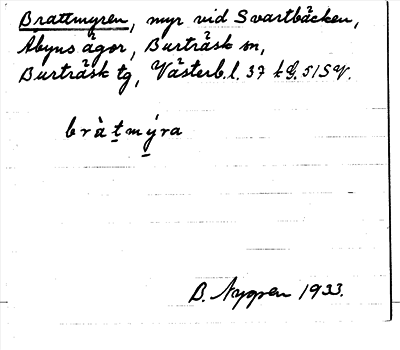 Brattmyren, myr vid Svartbäcken,
Åbyns ägor, Burträsk sn,
Burträsk tg, Västerb. l. 37 k G. 51 SV.
bràt̲mýra
B. Nygren 1933.